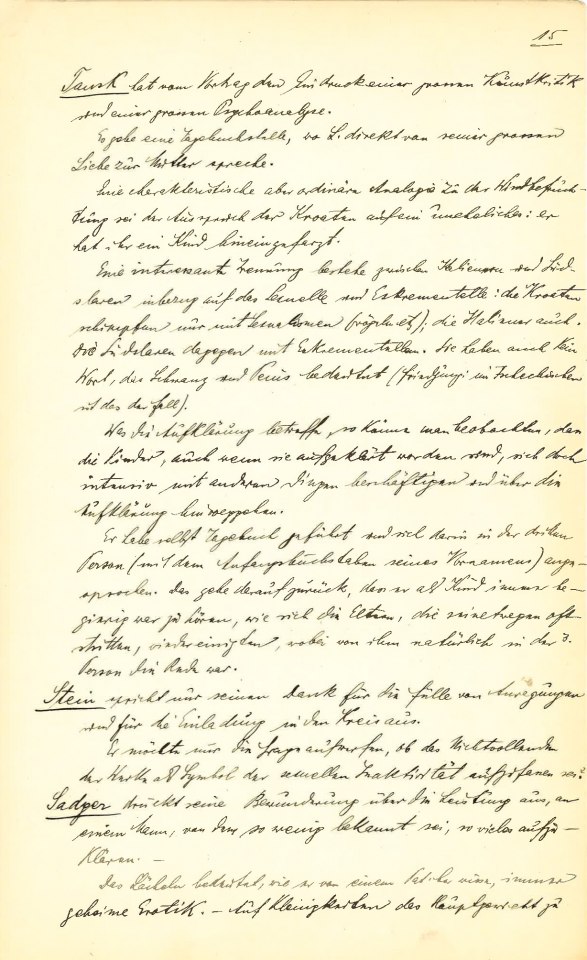 15
Tausk hat vom Vortrag den Eindruck einer grossen Kunstkritik
und einer grossen Psychoanalyse.
Es gebe eine Tagebuchstelle, wo L. direkt von seiner grossen
Liebe zur Mutter spreche.
Eine charakteristische aber ordinäre Analogie zu der Windbefruch-
tung sei der Ausspruch der Kroaten auf ein uneheliches: er
hat ihr ein Kind hineingefarzt.
Eine interessante Trennung bestehe zwischen Italienern und Süd-
slaven inbezug auf das Sexuelle und Exkrementelle: die Kroaten
schimpfen nur mit (vögeln etc); die Italiener auch.
Die Südslaven dagegen mit Exkrementellen. Sie haben auch kein
Wort, das Schwanz und Penis bedeutet (Friedjung: im Tschechischen
ist das der Fall).
Was die Aufklärung betreffe, so könne man beobachten, dass
die Kinder, auch wenn sie aufgeklärt worden sind, sich doch
intensiv mit anderen Dingen beschäftigen und über die
Aufklärung hinweggehen.
Er habe selbst Tagebuch geführt und sich darin in der dritten
Person (mit dem Anfangsbuchstaben seines Vornamens) ange-
sprochen. Das gehe darauf zurück, dass er als Kind immer be-
gierig war zu hören, wie sich die Eltern, die seinetwegen oft
stritten, wieder einigten, wobei von ihm natürlich in der 3.
Person die Rede war.
Stein spricht nur seinen Dank für die Fülle von Anregungen
und für die Einladung in den Kreis aus.
Er möchte nur die Frage aufwerfen, ob das Nichtvollenden
der Werke als Symbol der sexuellen Inaktivität aufzufassen sei?
Sadger drückt seine Bewunderung über die Leistung aus, an
einem Mann, von dem so wenig bekannt sei, so vieles aufzu-
klären. —
Das Lächeln bedeutet, wie er von einem Patienten wisse, immer
geheime Erotik. — Auf Kleinigkeiten das Hauptgewicht zu